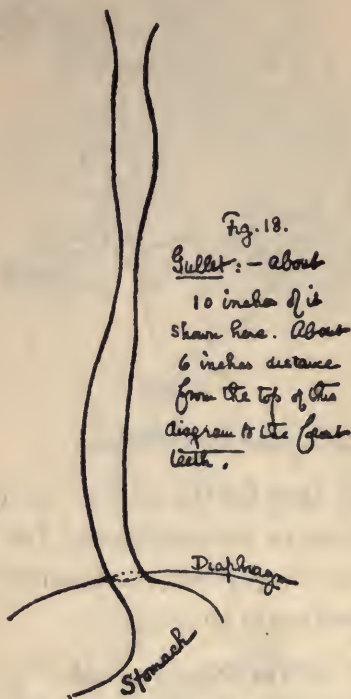 Fig. 18.
Gullet: - about
10 inches of it
shown here. About
6 inches distance
from the top of this
diagram to the front
teeth.
Diaphragm
Stomach